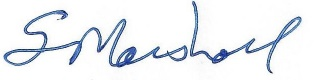 S Marshall